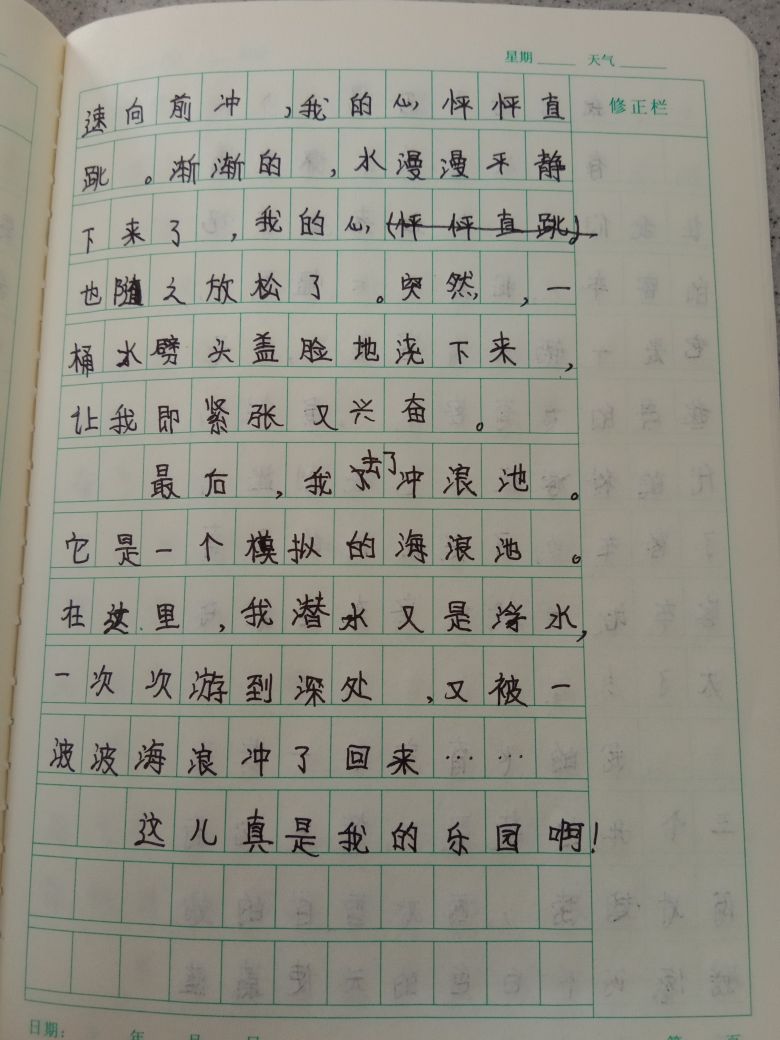 星期 天气
修正栏
速向前冲，我的心怦怦直
跳。渐渐的，水漫漫平静
下来了，我的心(怦怦直跳)
也随之放松了。突然，一
桶水劈头盖脸地浇下来，
让我即紧张又兴奋。
最后，我去了冲浪池。
它是一个模拟的海浪池。
在这里，我潜水又是浮水，
一次次游到深处，又被一
波波海浪冲了回来……
这儿真是我的乐园啊！
日期： 年 月 日 第 页